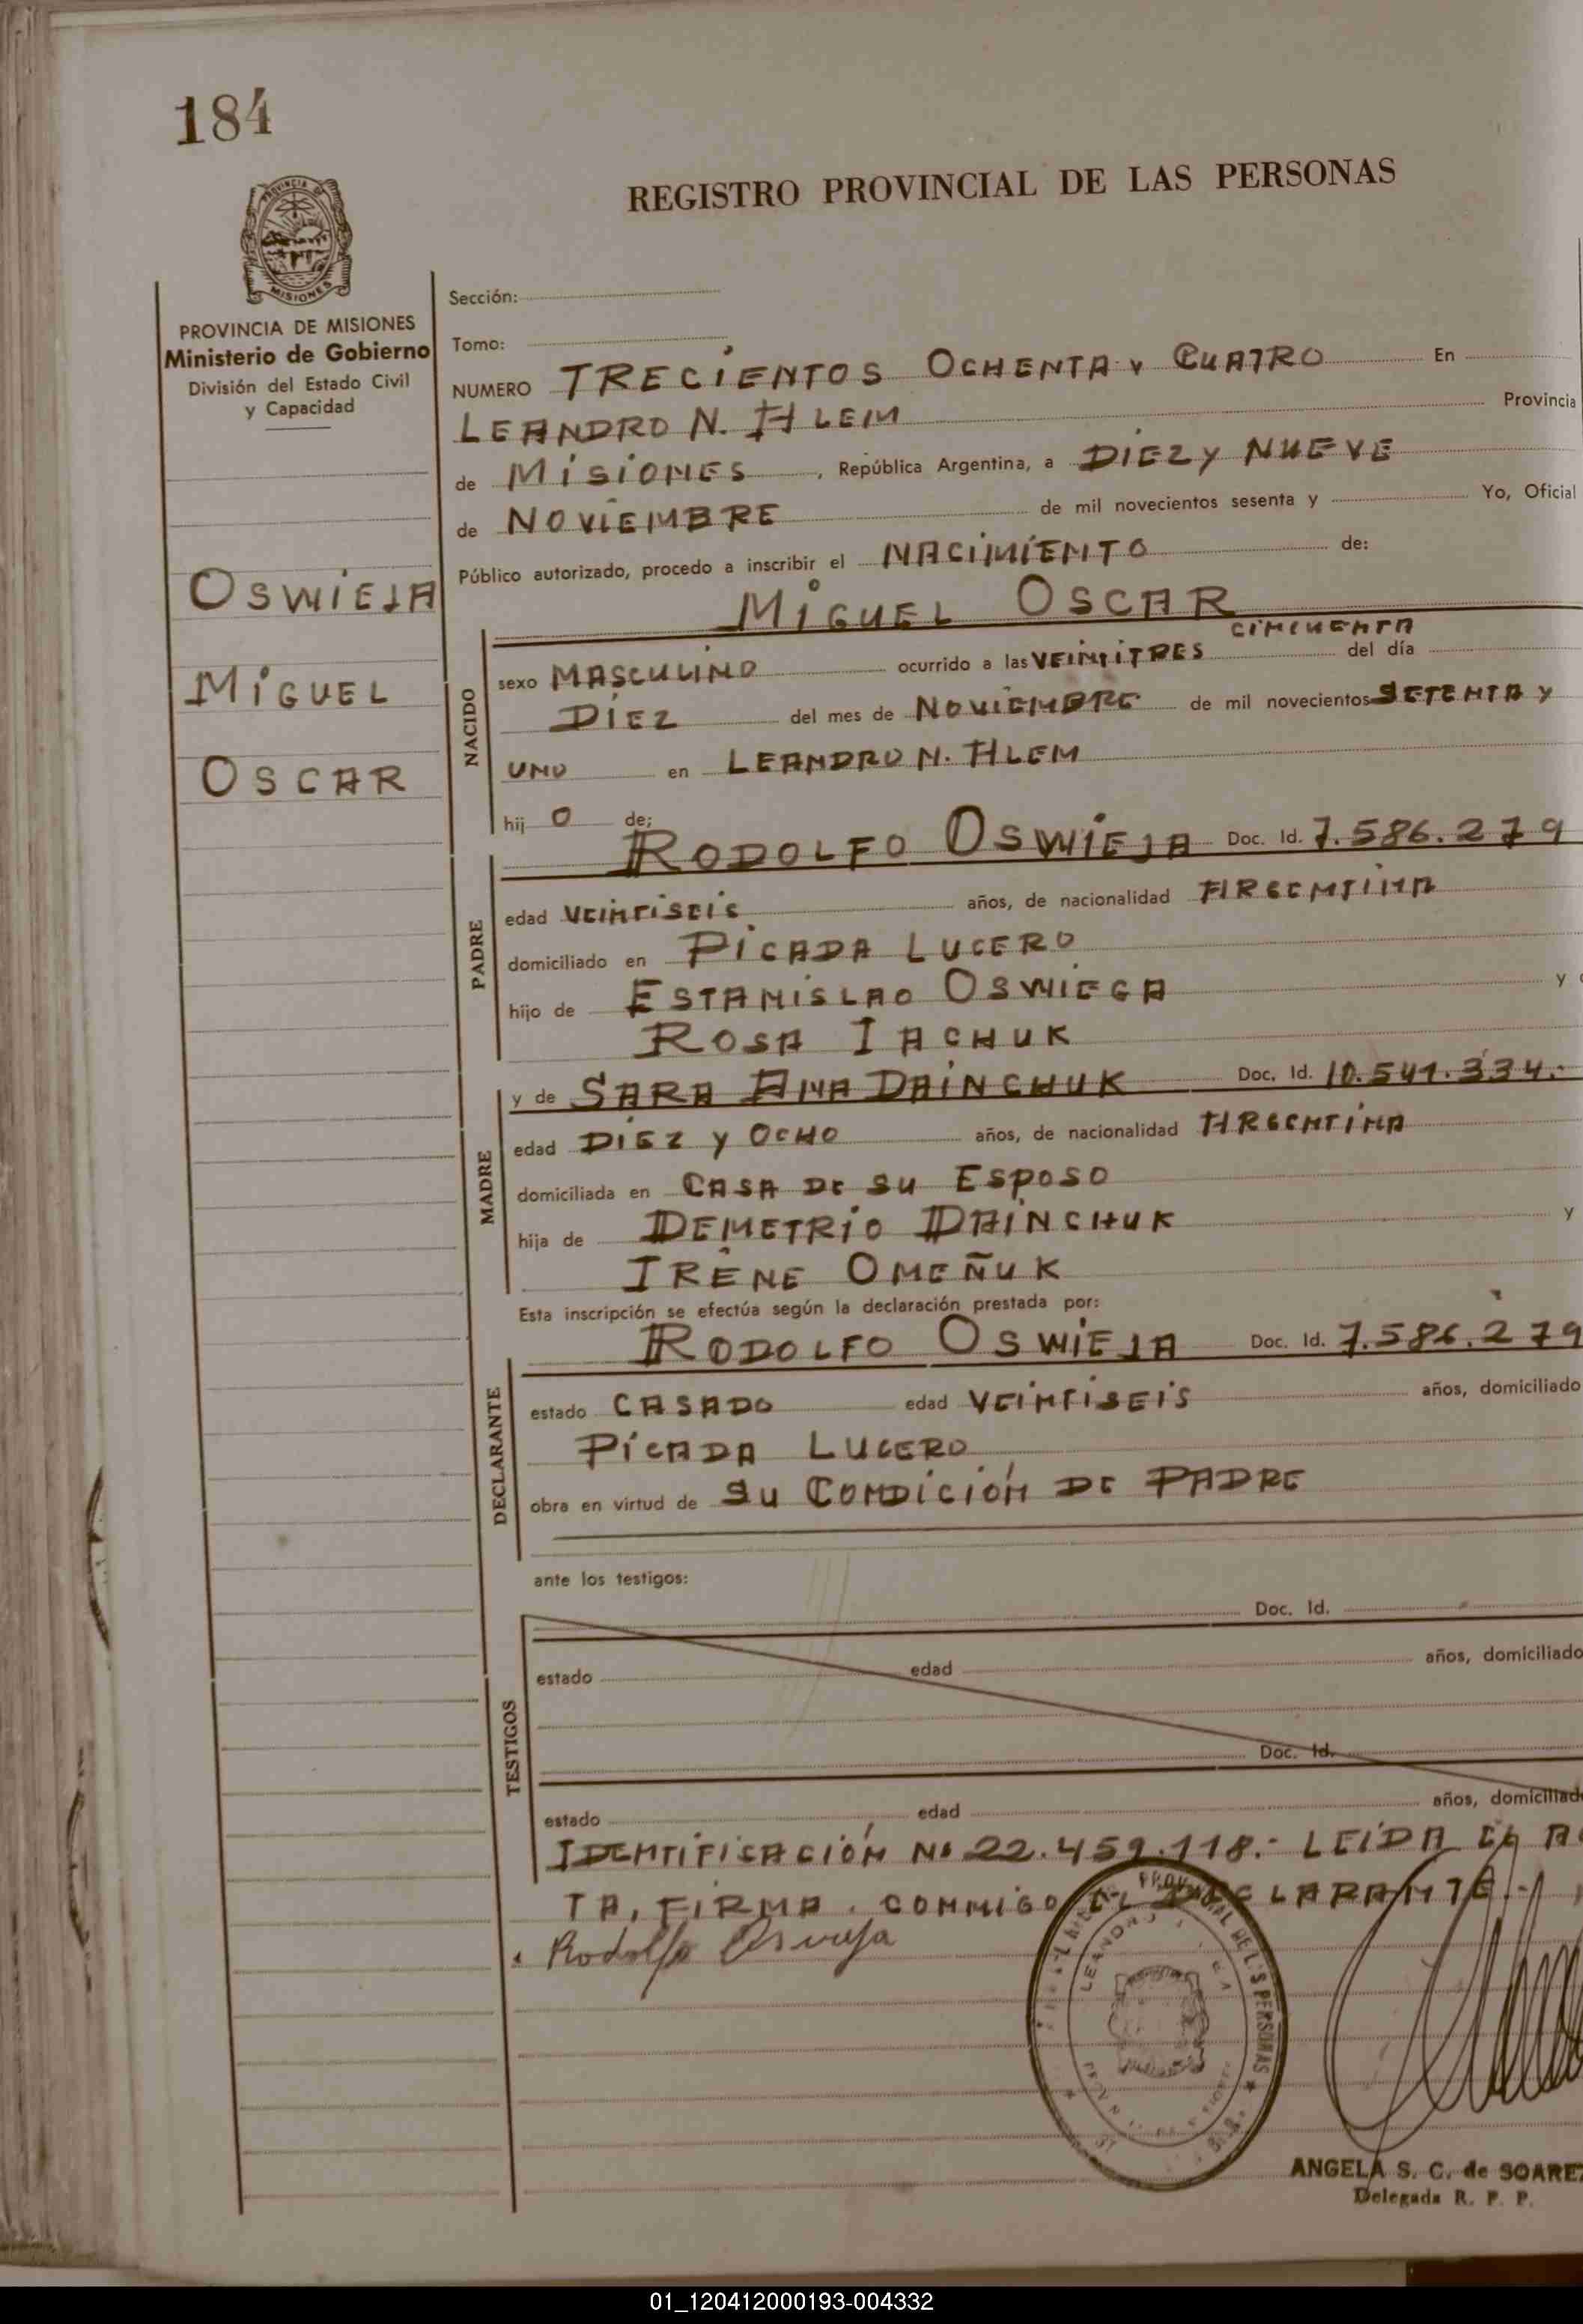 184
REGISTRO PROVINCIAL DE LAS PERSONAS
MISIONES
PROVINCIA DE MISIONES
Ministerio de Gobierno
División del Estado Civil
y Capacidad
OSWIEJA
MIGUEL
OSCAR
Sección:
Tomo:
NUMERO TRECIENTOS OCHENTA Y CUATRO En
LEANDRO N. ALEM Provincia
de MISIONES, República Argentina, a DIEZ y NUEVE
de NOVIEMBRE de mil novecientos sesenta y Yo, Oficial
Público autorizado, procedo a inscribir el NACIMIENTO de:
MIGUEL OSCAR
CINCUENTA
NACIDO
sexo MASCULINO ocurrido a las VEINTITRES del día
DIEZ del mes de NOVIEMBRE de mil novecientos SETENTA y
UNO en LEANDRO N. ALEM
hij O de;
RODOLFO OSWIEJA Doc. Id. 7.586.279
PADRE
edad VEINTISEIS años, de nacionalidad ARGENTINA
domiciliado en PICADA LUCERO
hijo de ESTANISLAO OSWIEGA y
ROSA IACHUK
y de SARA ANA DAINCHUK Doc. Id. 10.541.334.-
MADRE
edad DIEZ y OCHO años, de nacionalidad ARGENTINA
domiciliada en CASA DE SU ESPOSO
hija de DEMETRIO DAINCHUK y
IRENE OMEÑUK
Esta inscripción se efectúa según la declaración prestada por:
RODOLFO OSWIEJA Doc. Id. 7.586.279
DECLARANTE
estado CASADO edad VEINTISEIS años, domiciliado
PICADA LUCERO
obra en virtud de SU CONDICIÓN DE PADRE
ante los testigos:
Doc. Id.
TESTIGOS
estado edad años, domiciliado
Doc. Id.
estado edad años, domiciliado
IDENTIFICACIÓN Nº 22.459.118.- LEIDA EL AC
TA, FIRMA CONMIGO EL DECLARANTE.-
Rodolfo Oswieja
LEANDRO
PERSONAS
ANGELA S. C. de SOAREZ
Delegada R. P. P.
01_120412000193-004332